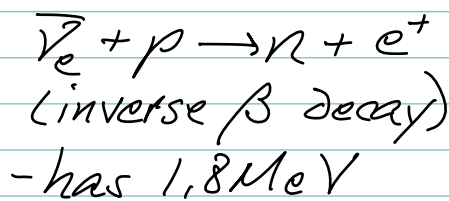 ν̅ₑ + p → n + e⁺
(inverse β decay)
- has 1,8 MeV